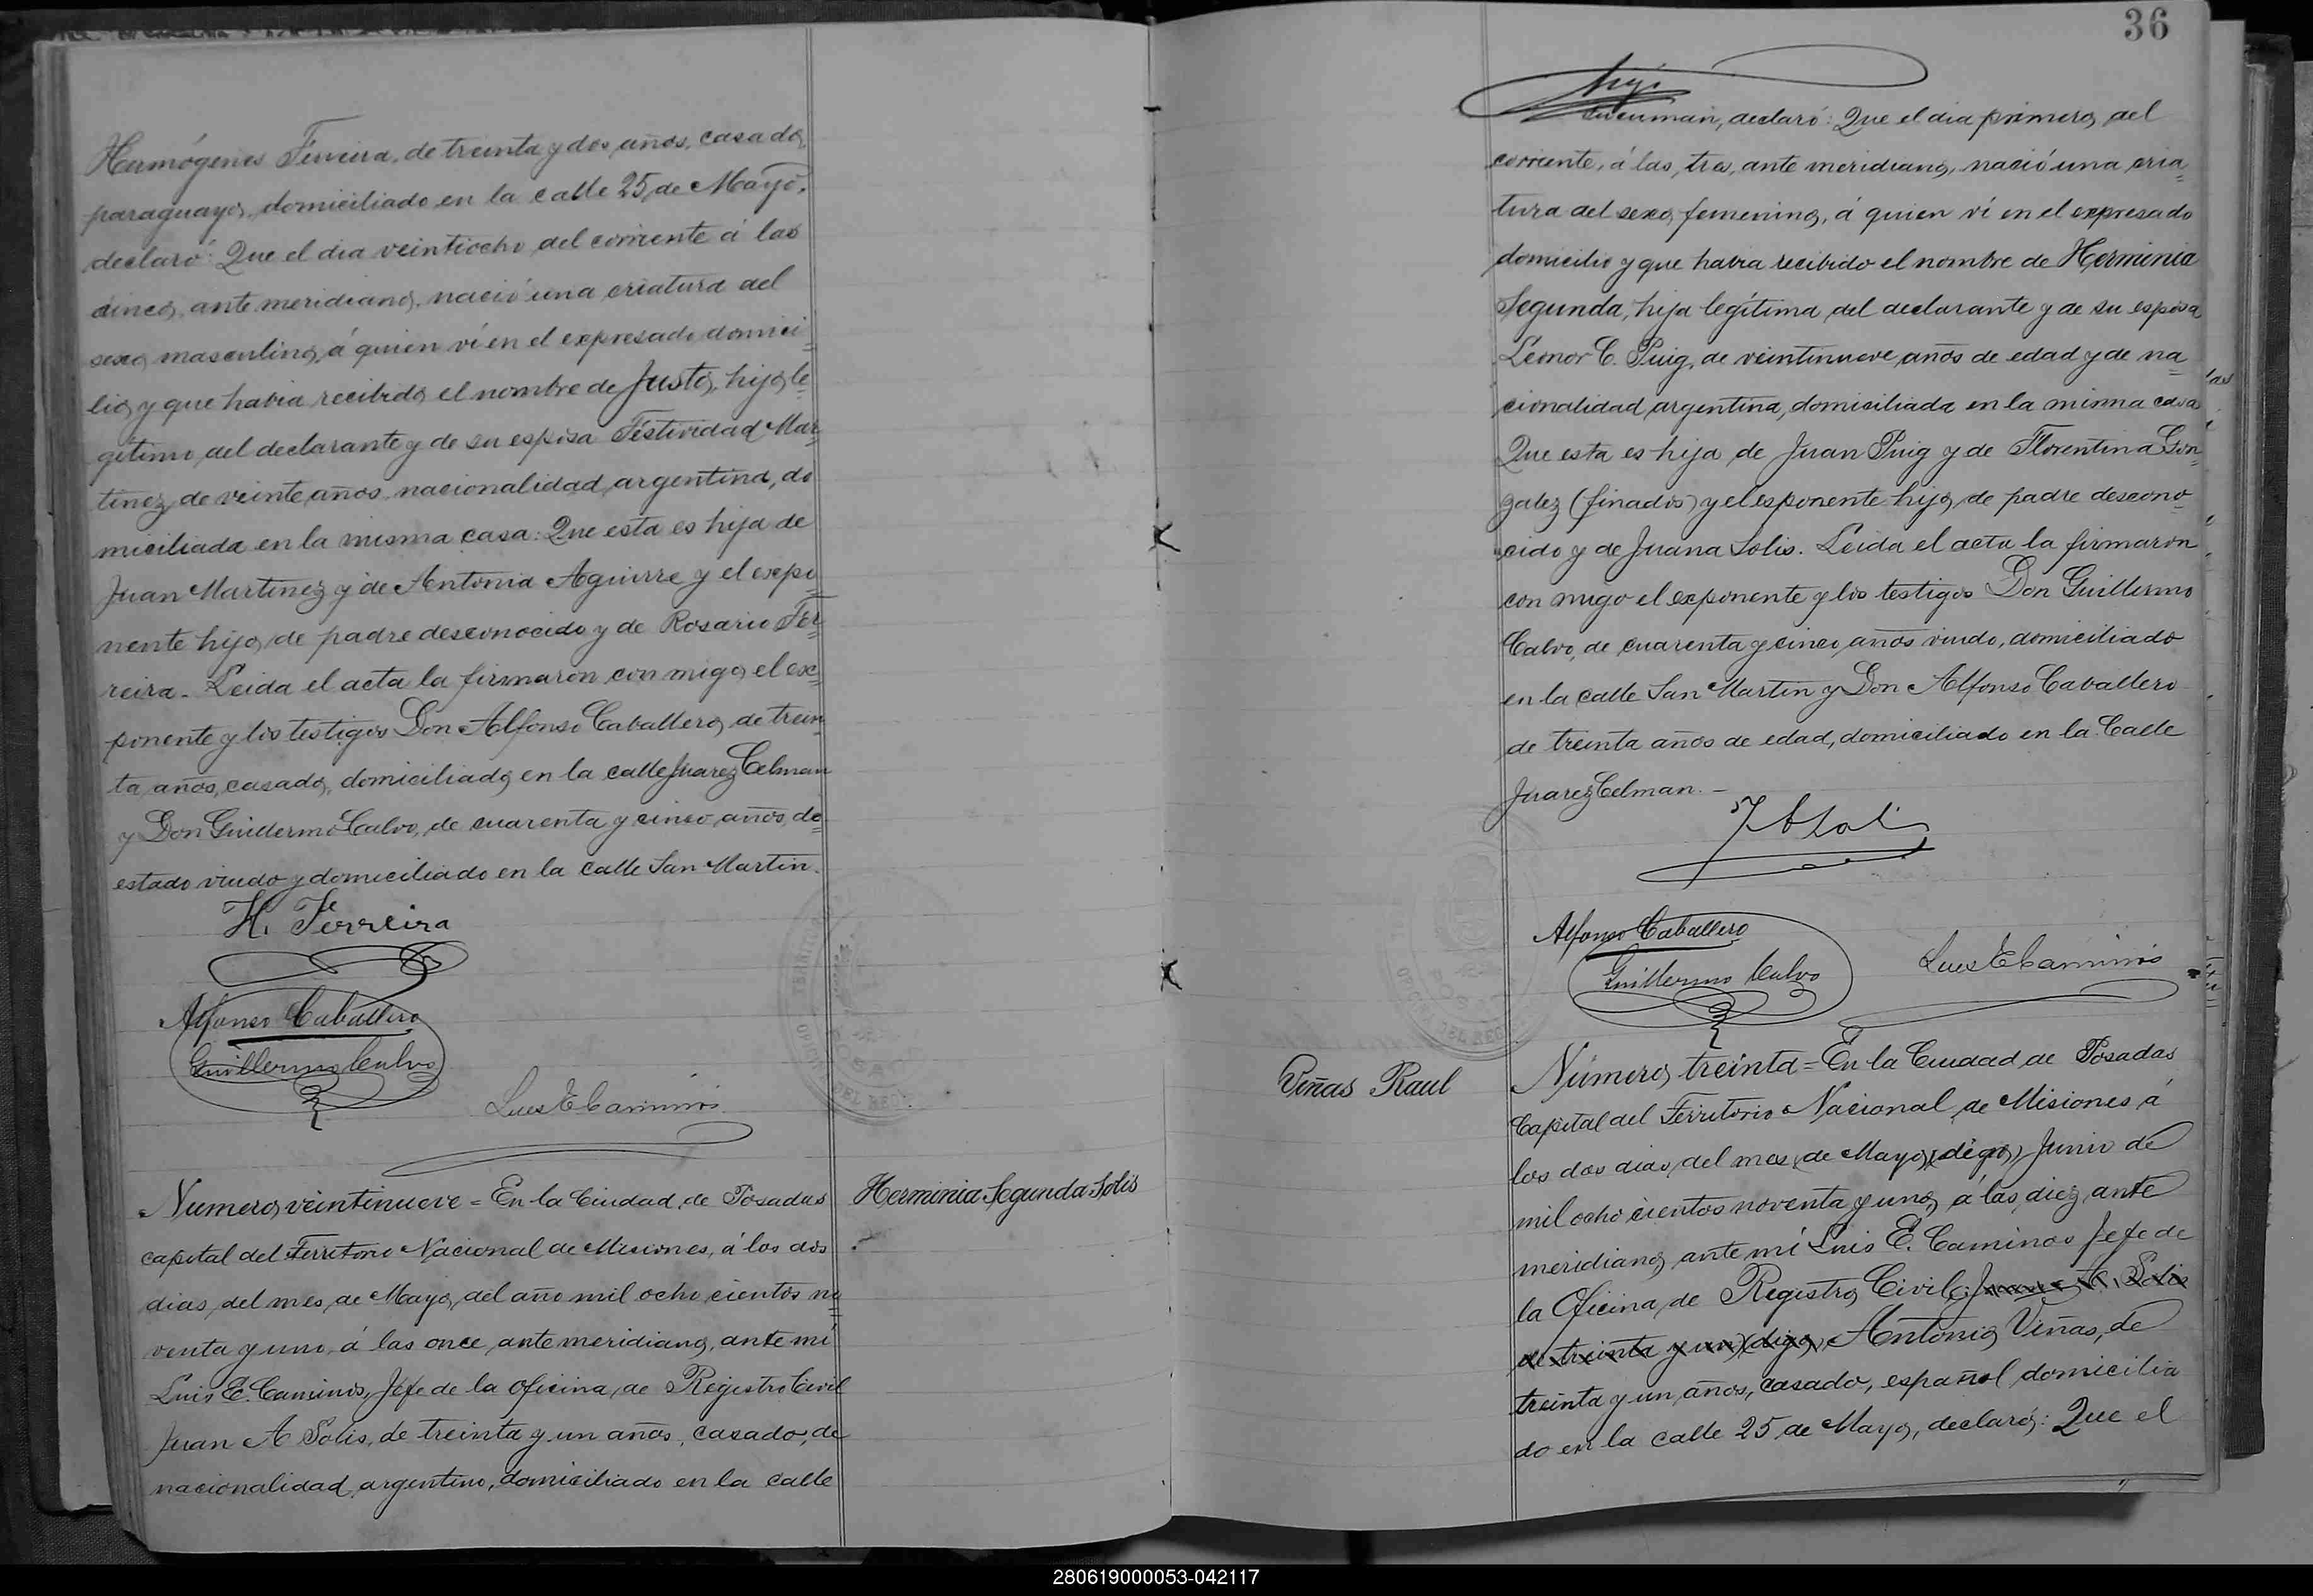 Hermógenes Ferreira, de treinta y dos años, casado,
paraguayo, domiciliado en la calle 25 de Mayo,
declaró: Que el dia veintiocho del corriente á las
cinco, ante meridiano, nació una criatura del
sexo masculino, á quien ví en el expresado domici=
lio, y que habia recibido el nombre de Justo, hijo le=
gítimo del declarante y de su esposa Festividad Mar=
tinez, de veinte años, nacionalidad argentina, do
miciliada en la misma casa: Que esta es hija de
Juan Martinez y de Antonia Aguirre y el expo=
nente hijo, de padre desconocido y de Rosario Fer=
reira. Leida el acta la firmaron con migo, el ex=
ponente y los testigos Don Alfonso Caballero, de trein=
ta años, casado, domiciliado en la calle Juarez Celman
y Don Guillermo Calvo, de cuarenta y cinco años, de=
estado viudo y domiciliado en la calle San Martin.
H. Ferreira
Alfonso Caballero
Guillermo Calvo
Luis E Caminos
Numero, veintinueve = En la Ciudad, de Posadas
capital del Territorio Nacional de Misiones, á los dos
dias, del mes, de Mayo, del año mil ocho cientos no=
venta y uno, á las once, ante meridiano, ante mí
Luis E. Caminos, Jefe de la oficina, de Registro Civil
Juan A Solis, de treinta y un años, casado, de
nacionalidad, argentino, domiciliado en la calle
Herminia Segunda Solis
36
Tucuman, declaró: Que el dia primero, del
corriente, á las, tres, ante meridiano, nació una cria=
tura del sexo, femenino, á quien ví en el expresado
domicilio y que habia recibido el nombre de Herminia
Segunda, hija legítima del declarante y de su esposa
Leonor C. Puig, de veintinueve años de edad y de na=
cionalidad argentina, domiciliada en la misma casa
Que esta es hija de Juan Puig y de Florentina Gon=
zalez (finados) y el esponente hijo, de padre descono=
cido y de Juana Solis. Leida el acta la firmaron
con migo el exponente y los testigos Don Guillermo
Calvo, de cuarenta y cinco, años viudo, domiciliado
en la calle San Martin y Don Alfonso Caballero
de treinta años de edad, domiciliado en la Calle
Juarez Celman. -
Alfonso Caballero
Guillermo Calvo
Luis E Caminos
Viñas Raul
Número, treinta = En la Ciudad de Posadas
Capital del Territorio Nacional de Misiones á
los dos dias, del mes, de Mayo, (digo), Junio de
mil ocho cientos noventa y uno, á las, diez, ante
meridiano, ante mí Luis E. Caminos Jefe de
la Oficina, de Registro, Civil, Juan A. Solis
de treinta y un (digo), Antonio, Viñas, de
treinta y un años, casado, español domicilia
do en la calle 25 de Mayo, declaró: Que el
280619000053-042117